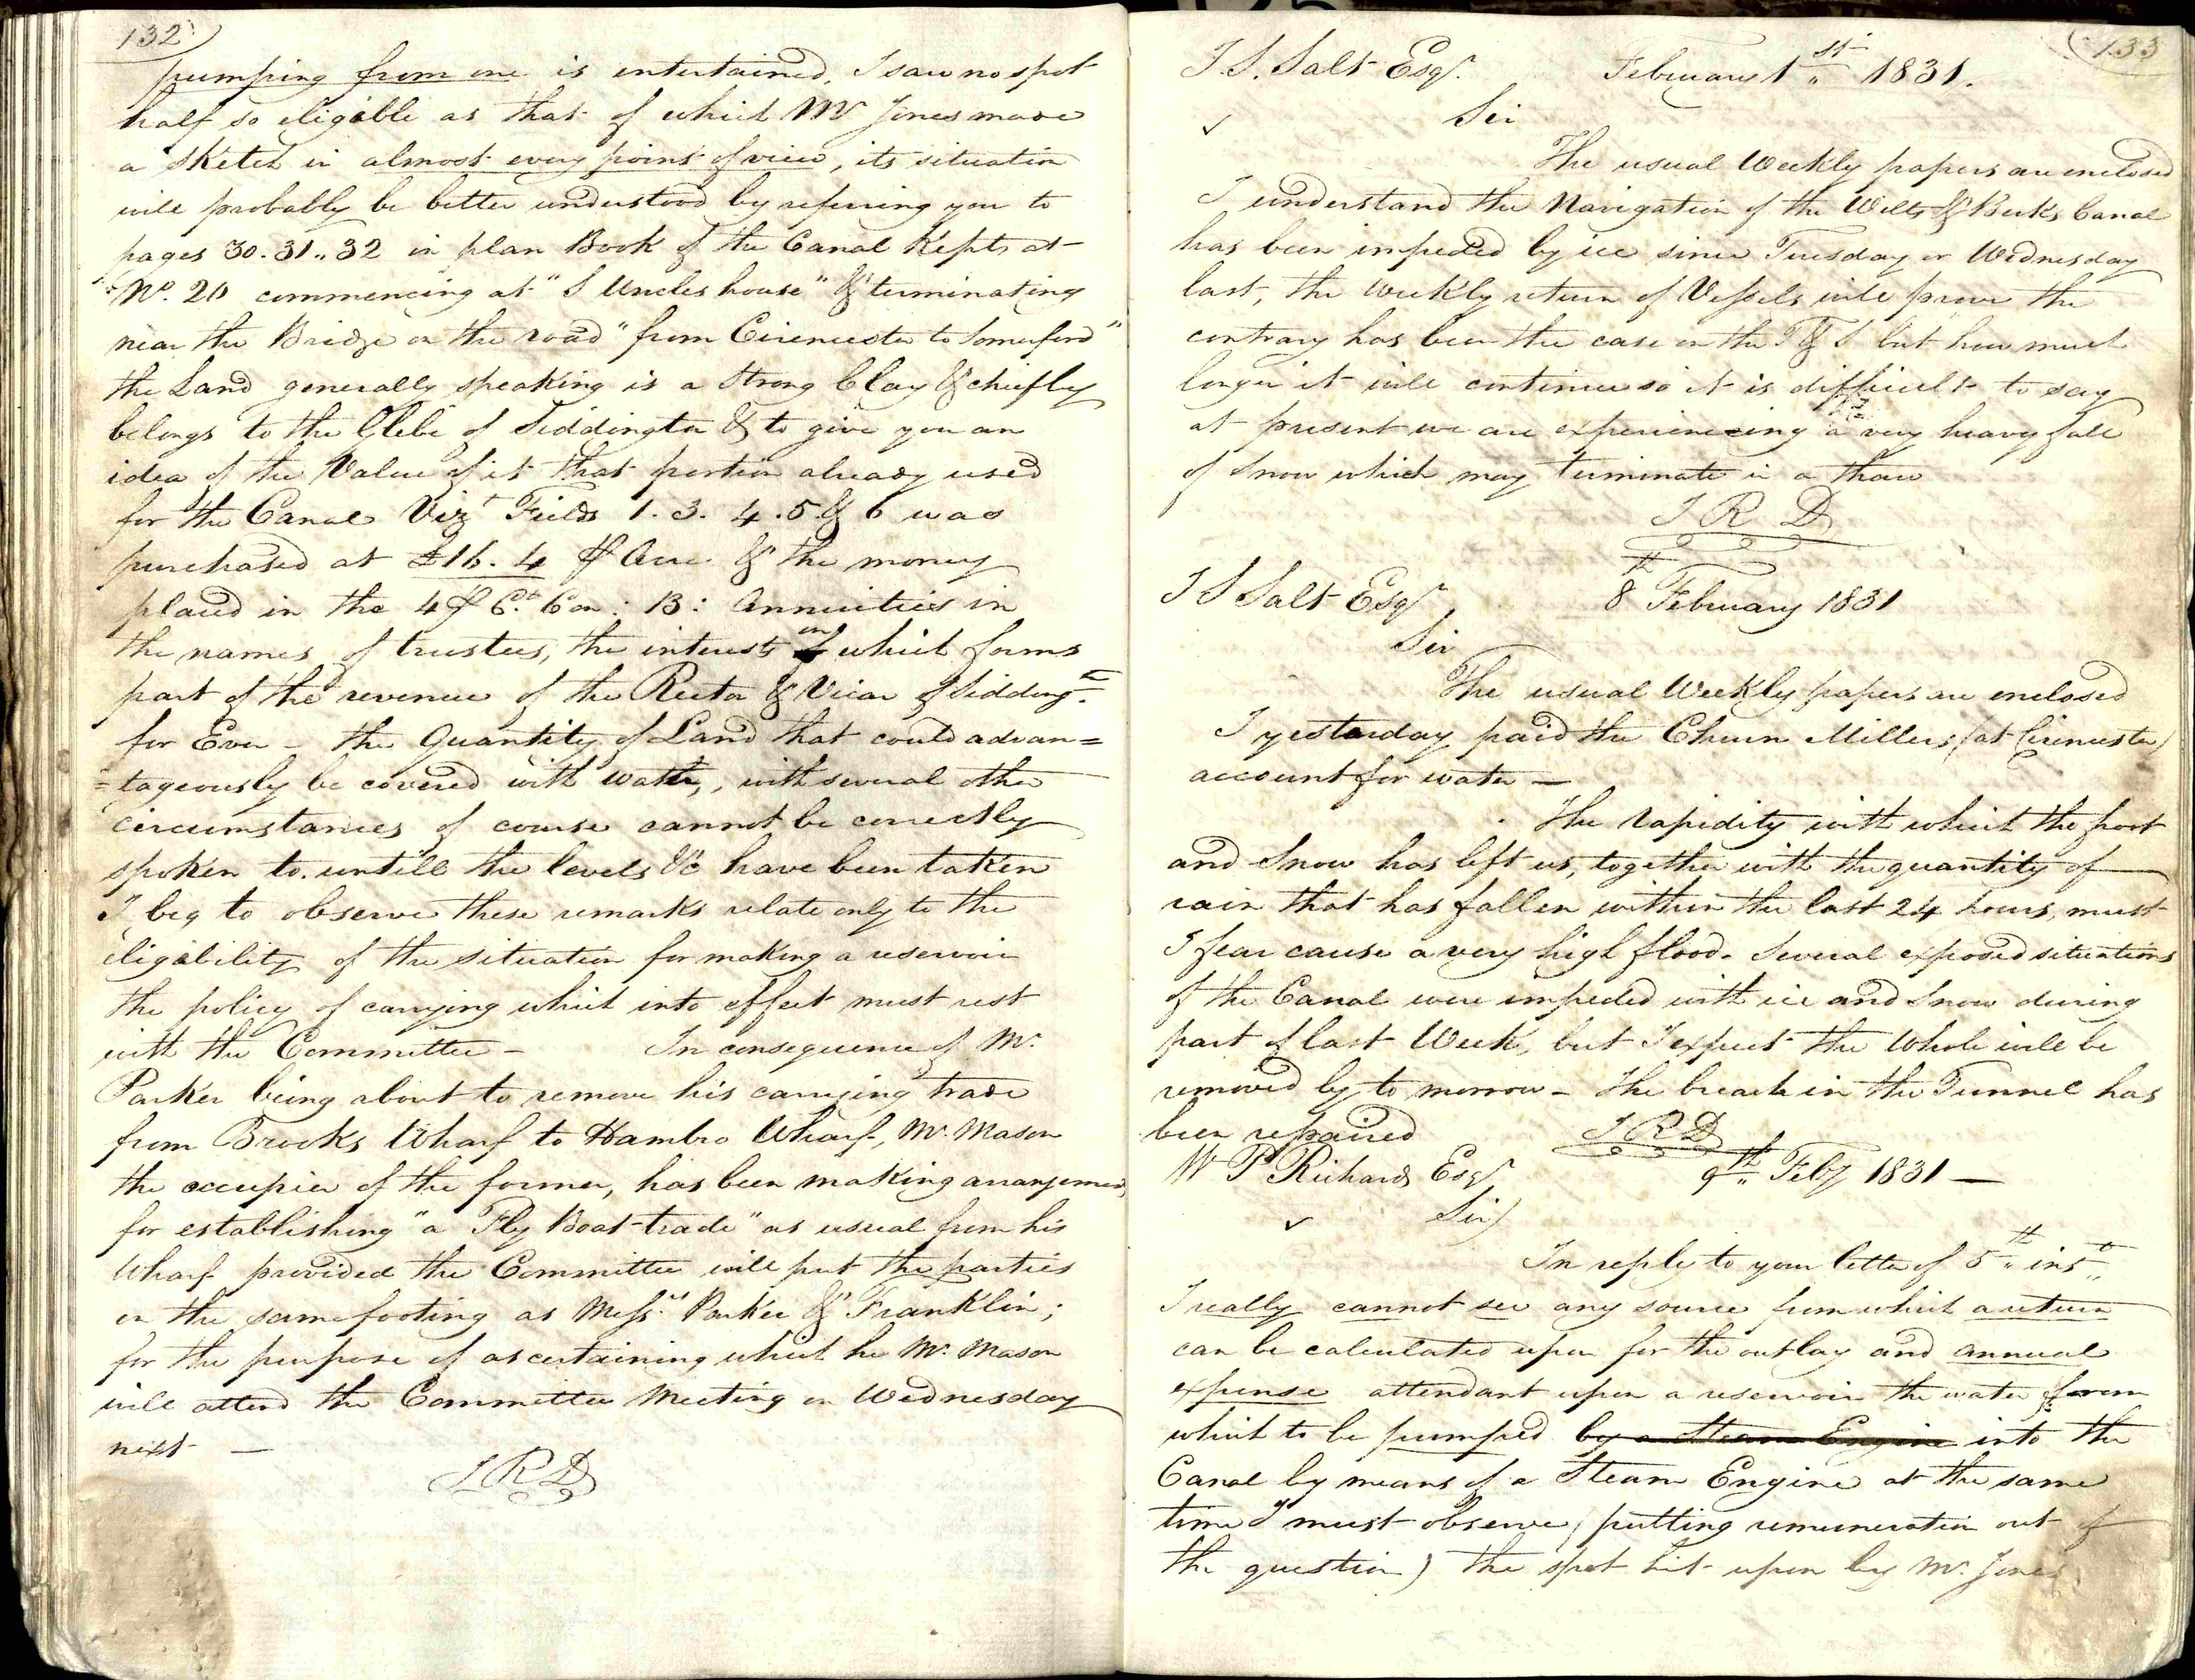 132
pumping from one is entertained, I saw no spot
half so eligable as that of which Mr Jones made
a sketch in almost every point of view, its situation
will probably be better understood by refering you to
pages 30. 31 .. 32 in plan Book of the Canal Kept at
No. 20 commencing at "S Uncles house" & terminating
near the Bridge on the road "from Cirencester to Somerford"
the Land generally speaking is a Strong Clay & chiefly
belongs to the Glebe of Siddington & to give you an
idea of the Value of it that portion already used
for the Canal Vizt Fields 1. 3. 4. 5 & 6 was
purchased at £16. 4 P Acre & the money
placed in the 4 P Ct. Con: B: Annuities in
the names of trustees, the interests on which forms
part of the revenue of the Rector & Vicar of Siddingtn
for Ever - the Quantity of Land that could advan=
=tageously be covered with water, with several other
circumstances of course cannot be correctly
spoken to. untill the levels &c have been taken
I beg to observe these remarks relate only to the
eligibility of the situation for making a reservoir
the policy of carrying which into effect must rest
with the Committee - In consequence of Mr.
Parker being about to remove his carrying trade
from Brooks Wharf to Hambro Wharf, Mr. Mason
the occupier of the former, has been making arrangemen
for establishing "a Fly Boat trade" as usual from his
Wharf provided the Committee will put the parties
on the same footing as Messrs Parker & Franklin;
for the purpose of ascertaining which he Mr. Mason
will attend the Committee Meeting on Wednesday
next —
J R D
133
J. S. Salt Esqr. February 1st 1831.
Sir
The usual Weekly papers are enclosed
I understand the Navigation of the Wilts & Berks Canal
has been impeded by ice since Tuesday or Wednesday
last, the Weekly return of Vessels will prove the
contrary has been the case on the T & S but how much
longer it will continue so it is difficult to say
at present we are experiencing a very heavy fall
of Snow which may terminate in a thaw
J R D
J S Salt Esqr 8th February 1831
Sir
The usual Weekly papers are enclosed
I yesterday paid the Churn Millers (at Cirencester)
account for water —
The rapidity with which the frost
and Snow has left us, together with the quantity of
rain that has fallen within the last 24 hours, must
I fear cause a very high flood. Several exposed situations
of the Canal were impeded with ice and Snow during
part of last Week, but I expect the Whole will be
removed by to morrow - The breach in the Tunnel has
been repaired J R D
W P Richards Esqr 9th Feby 1831 —
Sir
In reply to your letter of 5th inst
I really cannot see any source from which a return
can be calculated upon for the outlay and annual
expense attendant upon a reservoir the water from
which to be pumped by a Steam Engine into the
Canal by means of a Steam Engine at the same
time I must observe (putting remuneration out of
the question) the spot hit upon by Mr. Jones